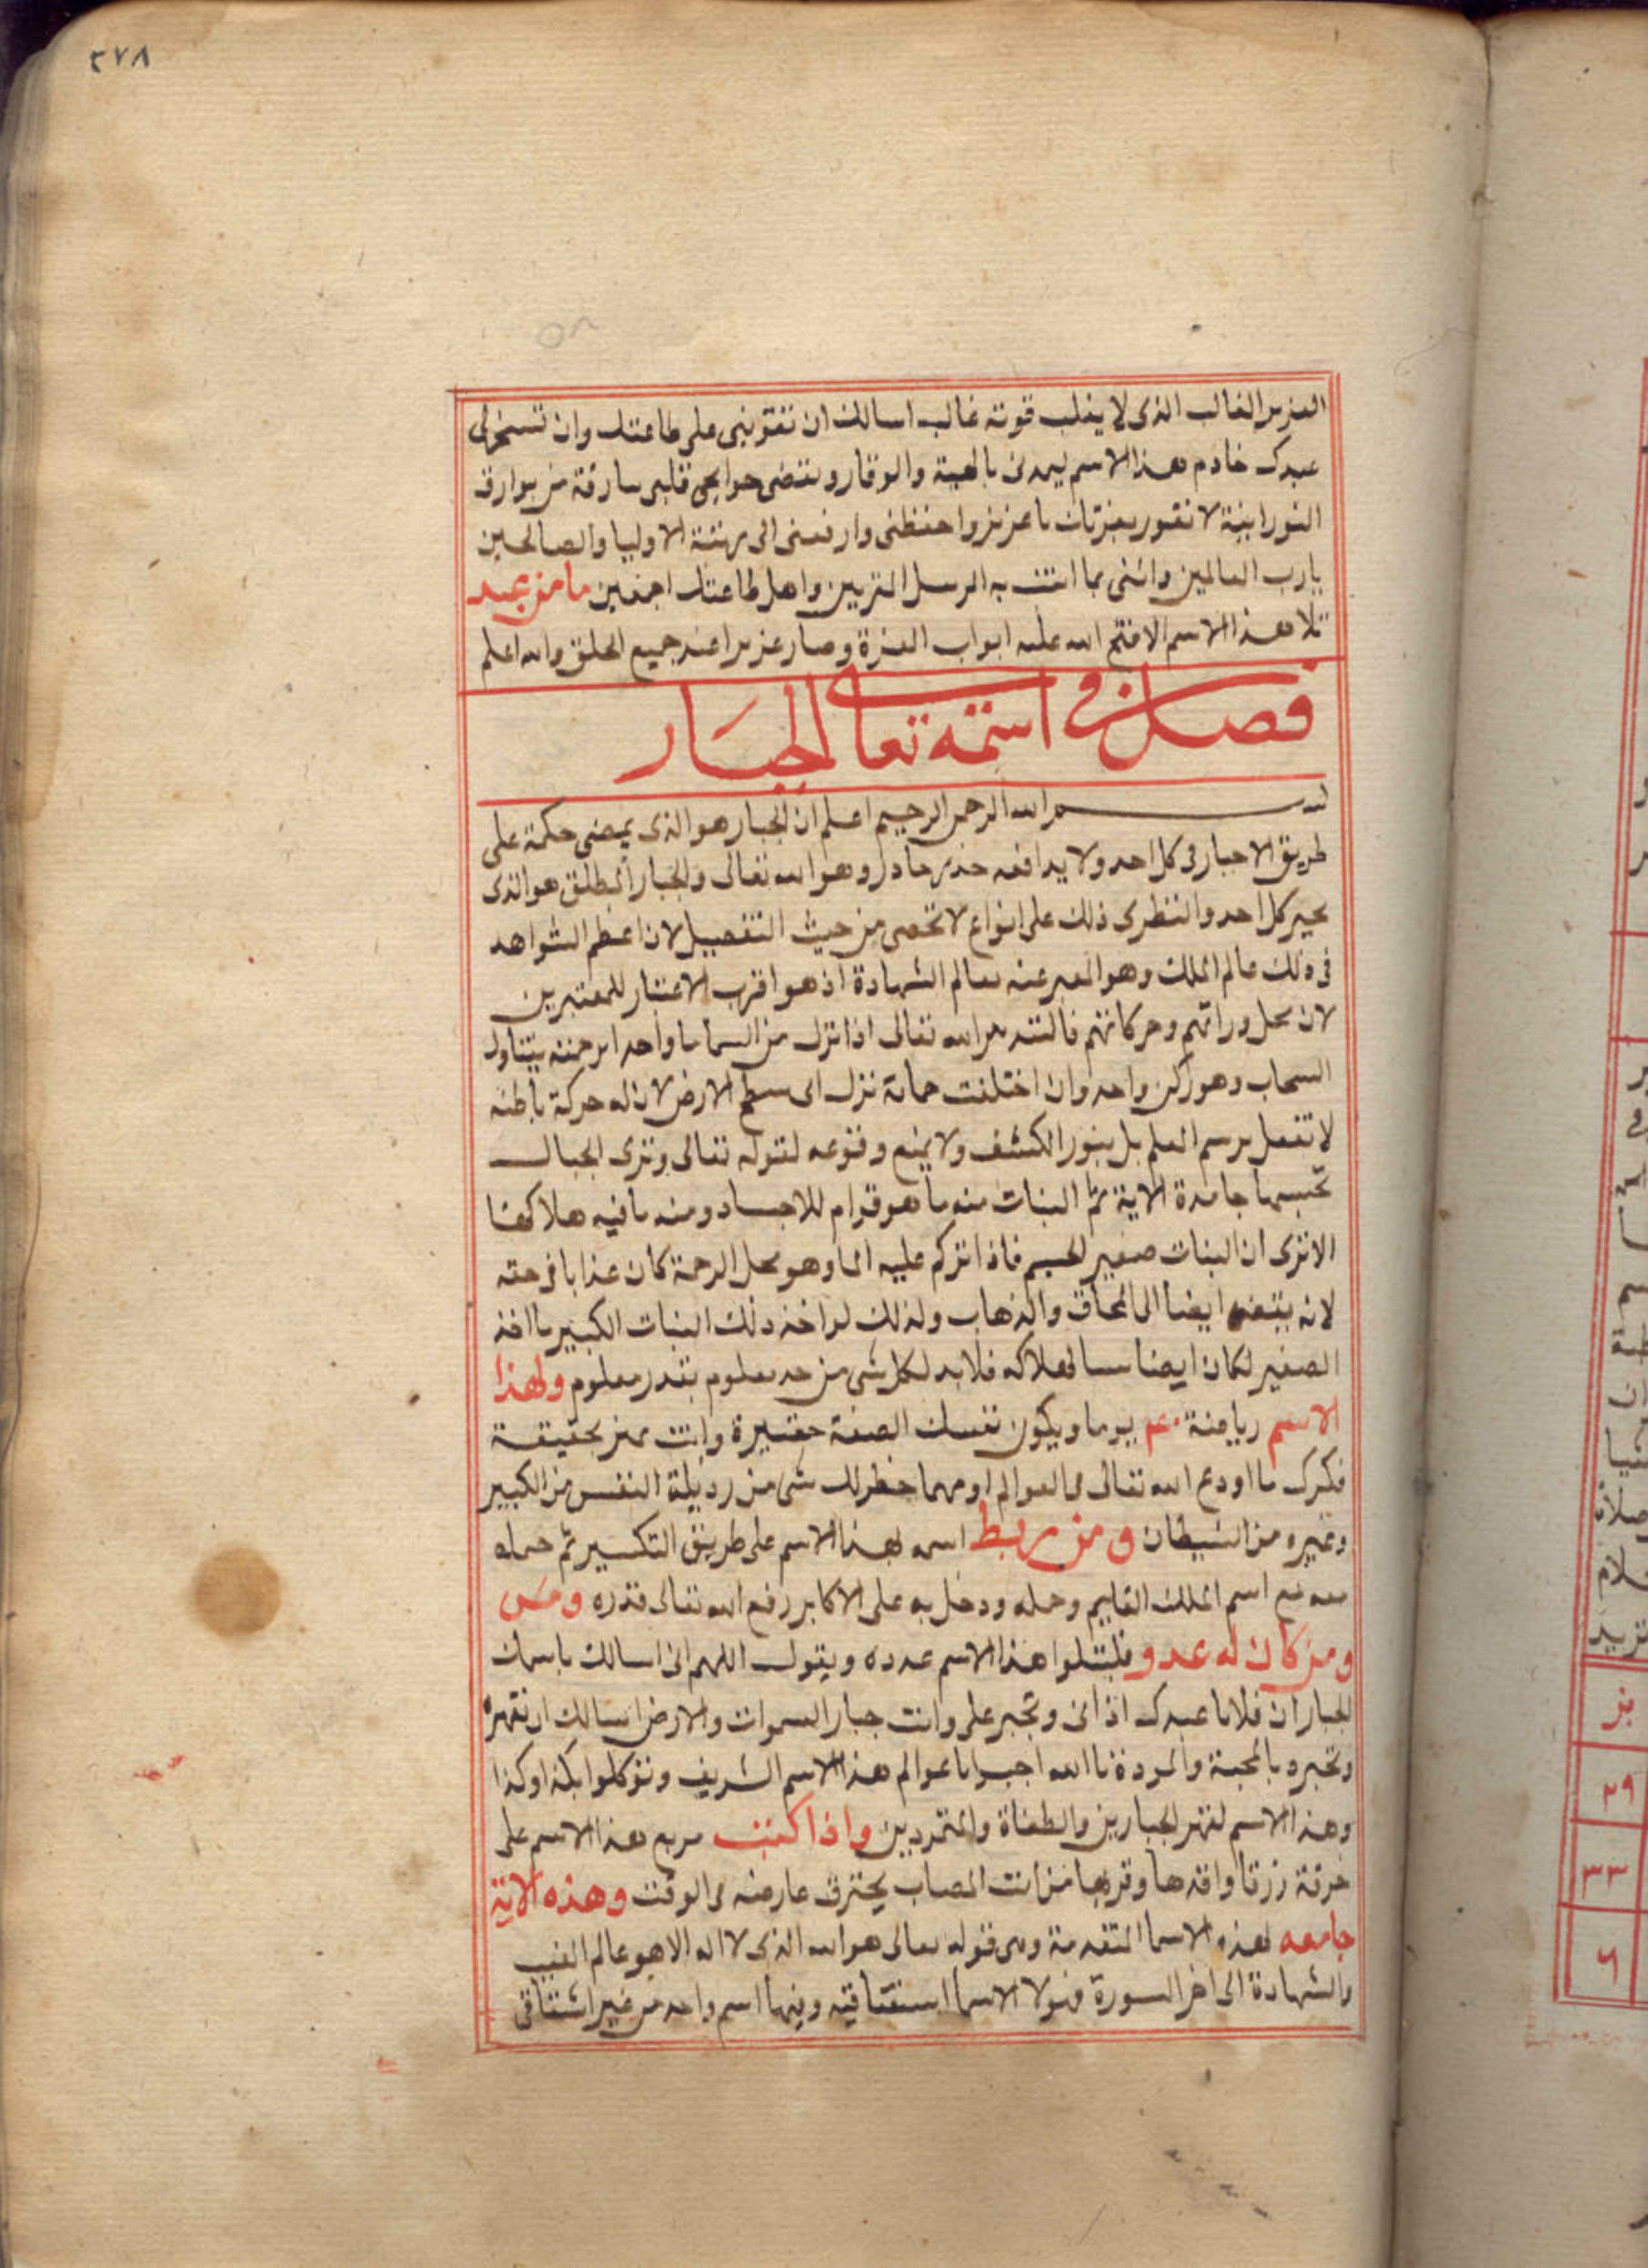 ٢٧٨
٥٨
العزيز الغالب الذى لا يغلب قوته غالب اسالك ان تقوينى على طاعتك وان تسخر لى
عبدك خادم هذا الاسم يمدنى بالهيبة والوقار وتقضى حوايجى قلبى بارقة من بوارق
النورانية لا تقور بعزتك يا عزيز واحفظنى وارفعنى الى مرتبة الاوليا والصالحين
يارب العالمين وائتنى بما اتيت به الرسل المقربين واهل طاعتك اجمعين ما من عبد
تلا هذا الاسم الا فتح الله عليه ابواب العزة وصار عزيزا عند جميع الخلق والله اعلم
فصل فى اسمه تعالى الجبار
بسم الله الرحمن الرحيم اعلم ان الجبار هو الذى يمضى حكمة على
طريق الاجبار فى كل احد ولا يدافعه حذر حاذر وهو الله تعالى والجبار المطلق هو الذى
يجبر كل احد والنظر فى ذلك على انواع لا تحصى من حيث التفصيل لان اعظم الشواهد
فى ذلك عالم الملك وهو المعبر عنه بعالم الشهادة اذ هو اقرب الاعتبار للمعتبرين
لان محل وحركاتهم فالله تعالى اذا نزل من السما ما واحدا برحمته يتناول
السحاب وهو ركن واحد وان اختلفت نزل الى سطح الارض لان له حركة باطنه
لا تفعل برسم العلم بل بنور الكشف ولا يمنع وقوعه لقوله تعالى وترى الجبال
تحسبها جامدة الاية ثم النبات منه ما هو قوام للاجساد ومنه ما فيه هلاكها
الا ترى ان النبات صغير الجسم فاذا تركم عليه الما وهو محل الرحمة كان عذابا فى حقه
لانه ايضا الى المحاق والذهاب ولذلك لو اخذ ذلك النبات الكبير ما اخذ
الصغير لكان ايضا سببا لهلاكه فلا بد لكل شى من حد معلوم بقدر معلوم ولهذا
الاسم رياضة يوما ويكون نفسك الصفة حقيرة وانت بحقيقة
فكرك ما اودع الله تعالى فى العوالم ومهما خطر لك شى من رذيلة النفس من الكبير
وغيره من الشيطان ومن ربط اسمه بهذا الاسم على طريق التكسير ثم حمله
معه مع اسم الملك القايم وحمله ودخل به على الاكابر رفع الله تعالى قدره
ومن كان له عدو فليتلوا هذا الاسم عدده ويقول اللهم انى اسالك باسمك
الجبار ان فلانا عبدك اذانى وتجبر على وانت جبار السموات والارض اسالك ان تقهره
وتجبره بالمحبة والمودة يا الله اجيبوا يا عوالم هذا الاسم الشريف وتوكلوا بكذا وكذا
وهذا الاسم لقهر الجبارين والطغاة والمتمردين واذا كتبت مربع هذا الاسم على
خرقة زرقا واقدها وقربها من انف المصاب يحترق عارضه فى الوقت وهذه الاية
جامعه لهذه الاسما المتقدمة وهى قوله تعالى هو الله الذى لا اله الا هو عالم الغيب
والشهادة الى اخر السورة فهولا الاسما اشتقاقيه وفيها اسم واحد من غير اشتقاق